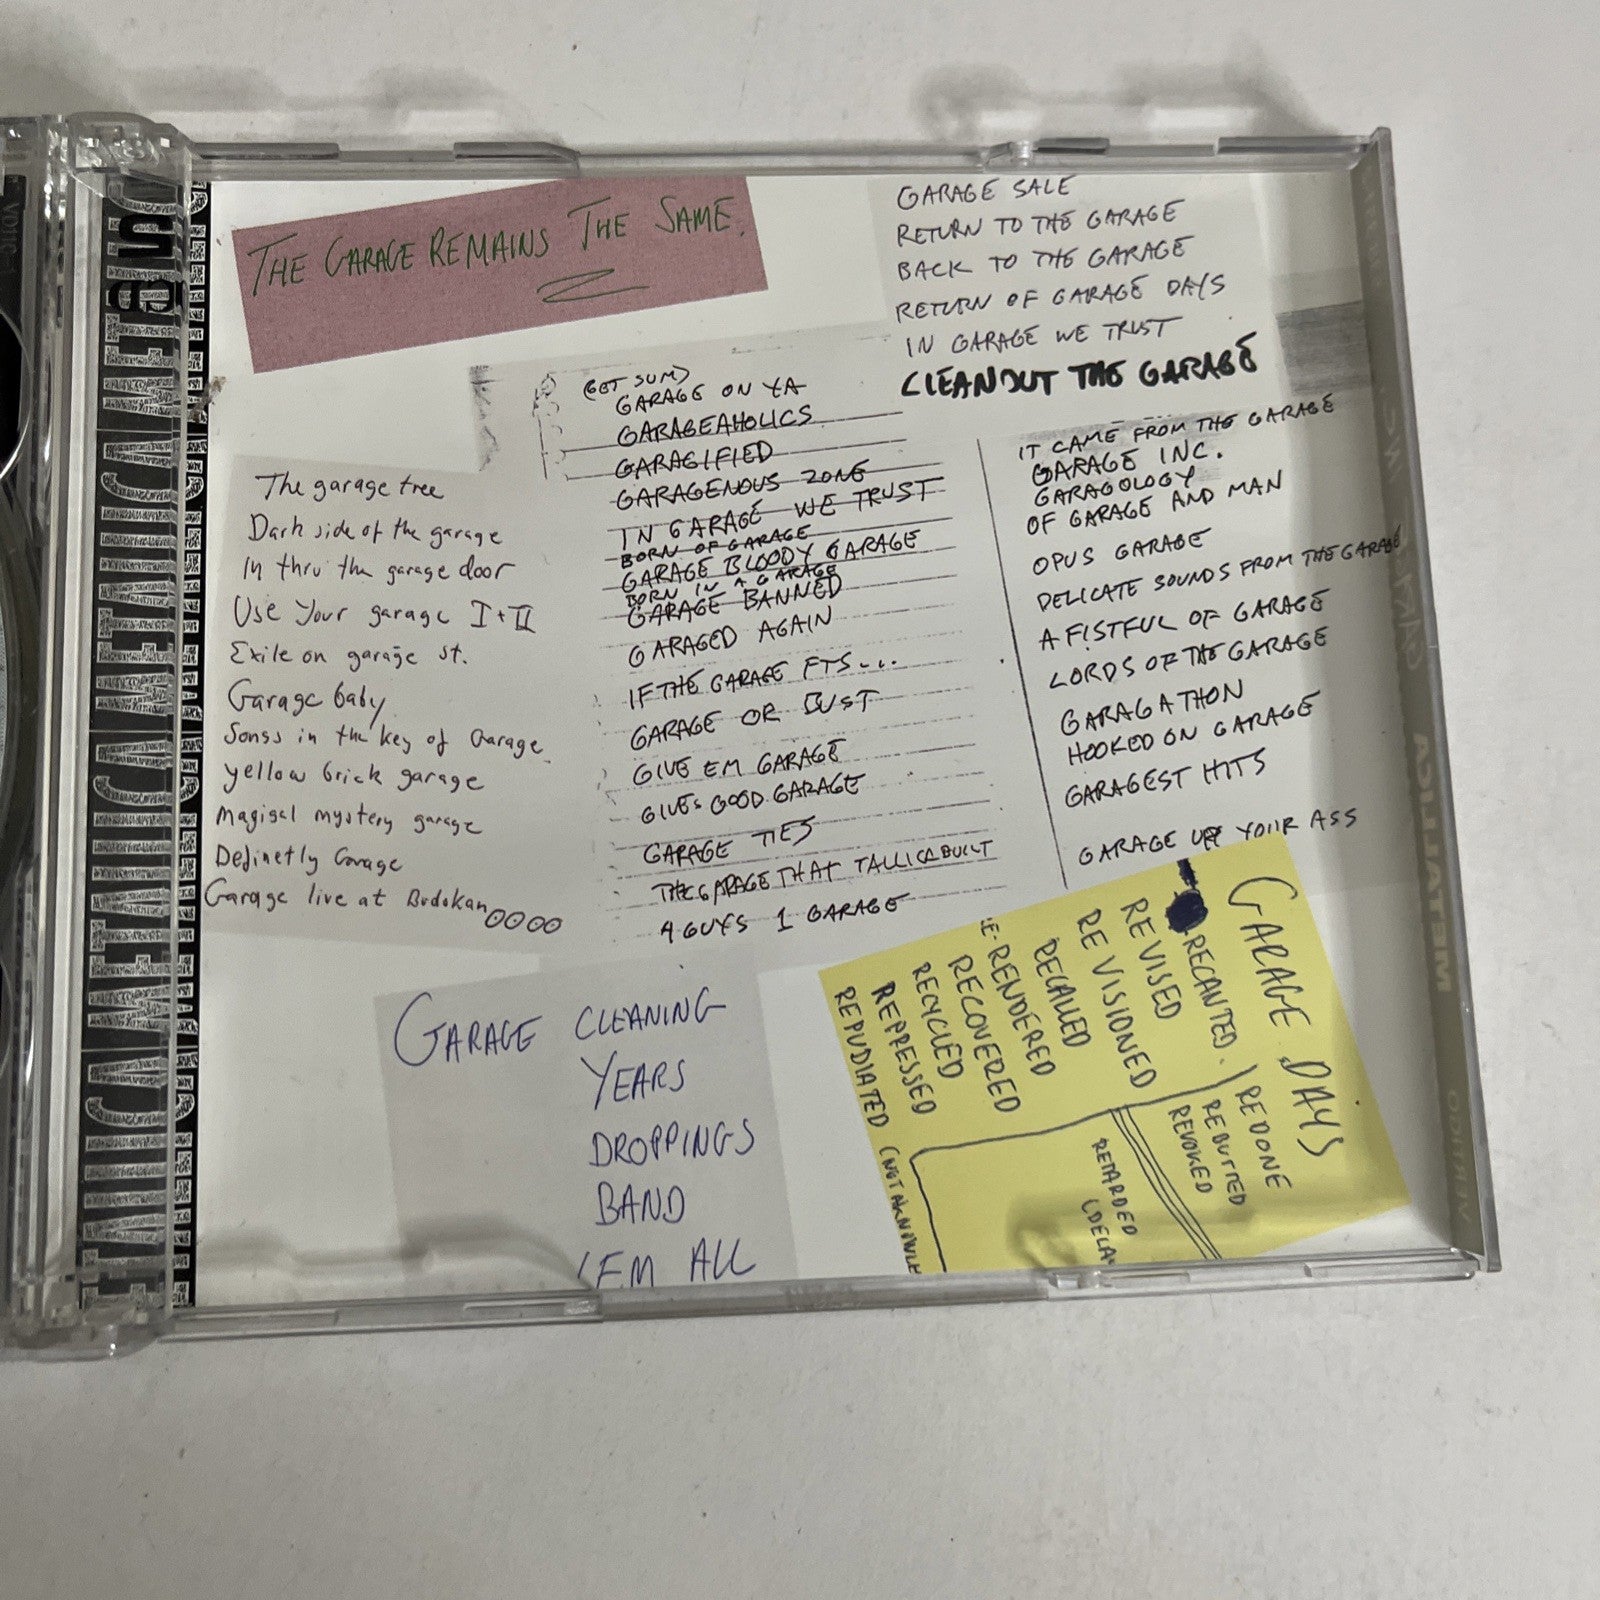 THE GARAGE REMAINS THE SAME.
GARAGE SALE
RETURN TO THE GARAGE
BACK TO THE GARAGE
RETURN OF GARAGE DAYS
IN GARAGE WE TRUST
CLEANOUT THE GARAGE
(GET SUM)
GARAGE ON YA
GARAGEAHOLICS
GARAGIFIED
GARAGENOUS ZONE
IN GARAGE WE TRUST
BORN OF GARAGE
GARAGE BLOODY GARAGE
BORN IN A GARAGE
GARAGE BANNED
GARAGED AGAIN
IF THE GARAGE FTS...
GARAGE OR BUST
GIVE EM GARAGE
GIVES GOOD GARAGE
GARAGE TIES
THE GARAGE THAT TALLICA BUILT
4 GUYS 1 GARAGE
IT CAME FROM THE GARAGE
GARAGE INC.
GARAGOLOGY
OF GARAGE AND MAN
OPUS GARAGE
DELICATE SOUNDS FROM THE GARAGE
A FISTFUL OF GARAGE
LORDS OF THE GARAGE
GARAGATHON
HOOKED ON GARAGE
GARAGEST HITS
GARAGE UP YOUR ASS
The garage tree
Dark side of the garage
In thru the garage door
Use Your garage I + II
Exile on garage st.
Garage baby
Songs in the key of Garage
yellow brick garage
Magical mystery garage
Definetly Garage
Garage live at Budokan
GARAGE CLEANING
YEARS
DROPPINGS
BAND
'EM ALL
GARAGE DAYS
RECANTED.
REVISED
RE VISIONED
RECALLED
E-RENDERED
RECOVERED
RECYCLED
REPRESSED
REPUDIATED (NOT AKNOWLE
REDONE
REBUTTED
REVOKED
RETARDED
(DELA
METALLICA
VERTIGO